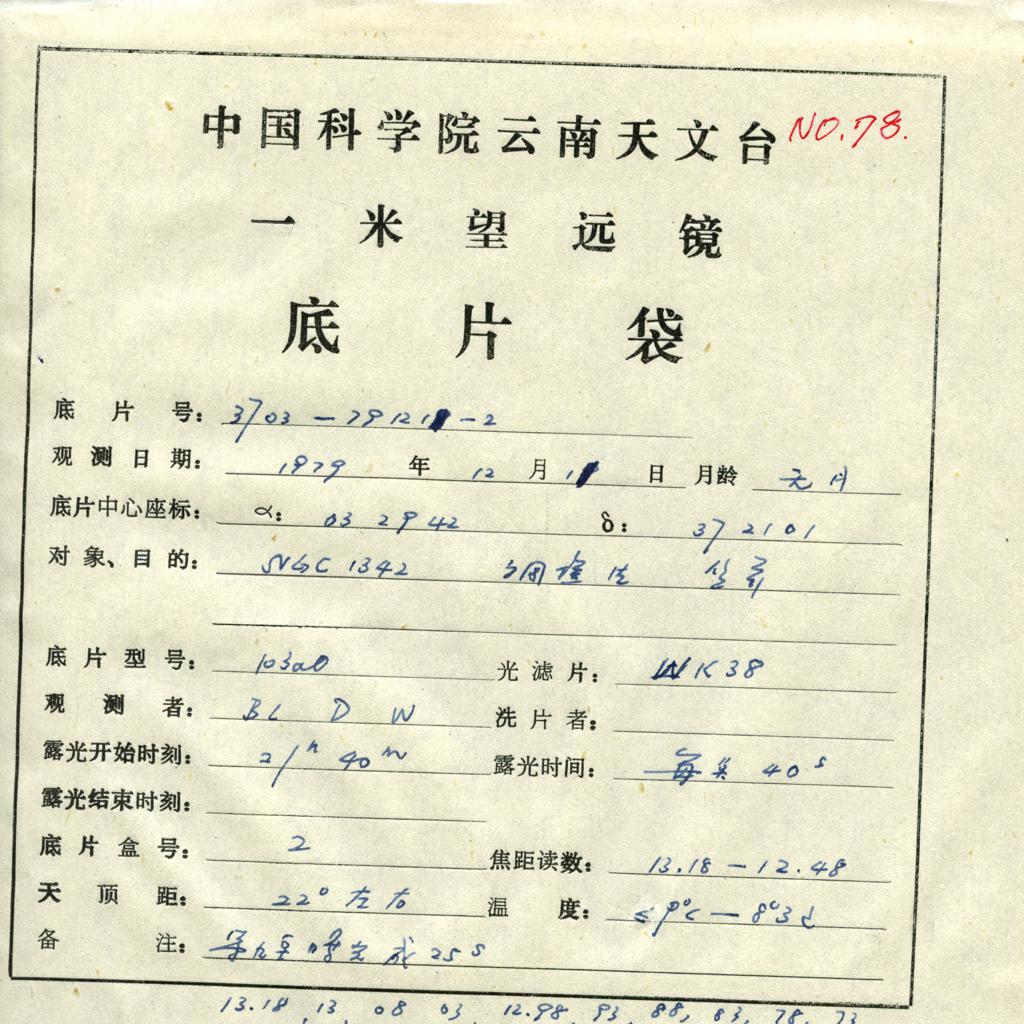 中国科学院云南天文台 NO.78.
一米望远镜
底片袋
底片号: 3703-7912-2
观测日期: 1979年 12月 日 月龄 无月
底片中心座标: α: 03 29 42 δ: 37 21 01
对象、目的: NGC 1342
底片型号: 103aO 光滤片: WK38
观测者: BL D W 洗片者:
露光开始时刻: 21h 40m 露光时间: 每 40s
露光结束时刻:
底片盒号: 2 焦距读数: 13.18-12.48
天顶距: 22° 左右 温度:
备注: 成 25s
13.18, 13, 08 03, 12.98, 93, 88, 83, 78, 73